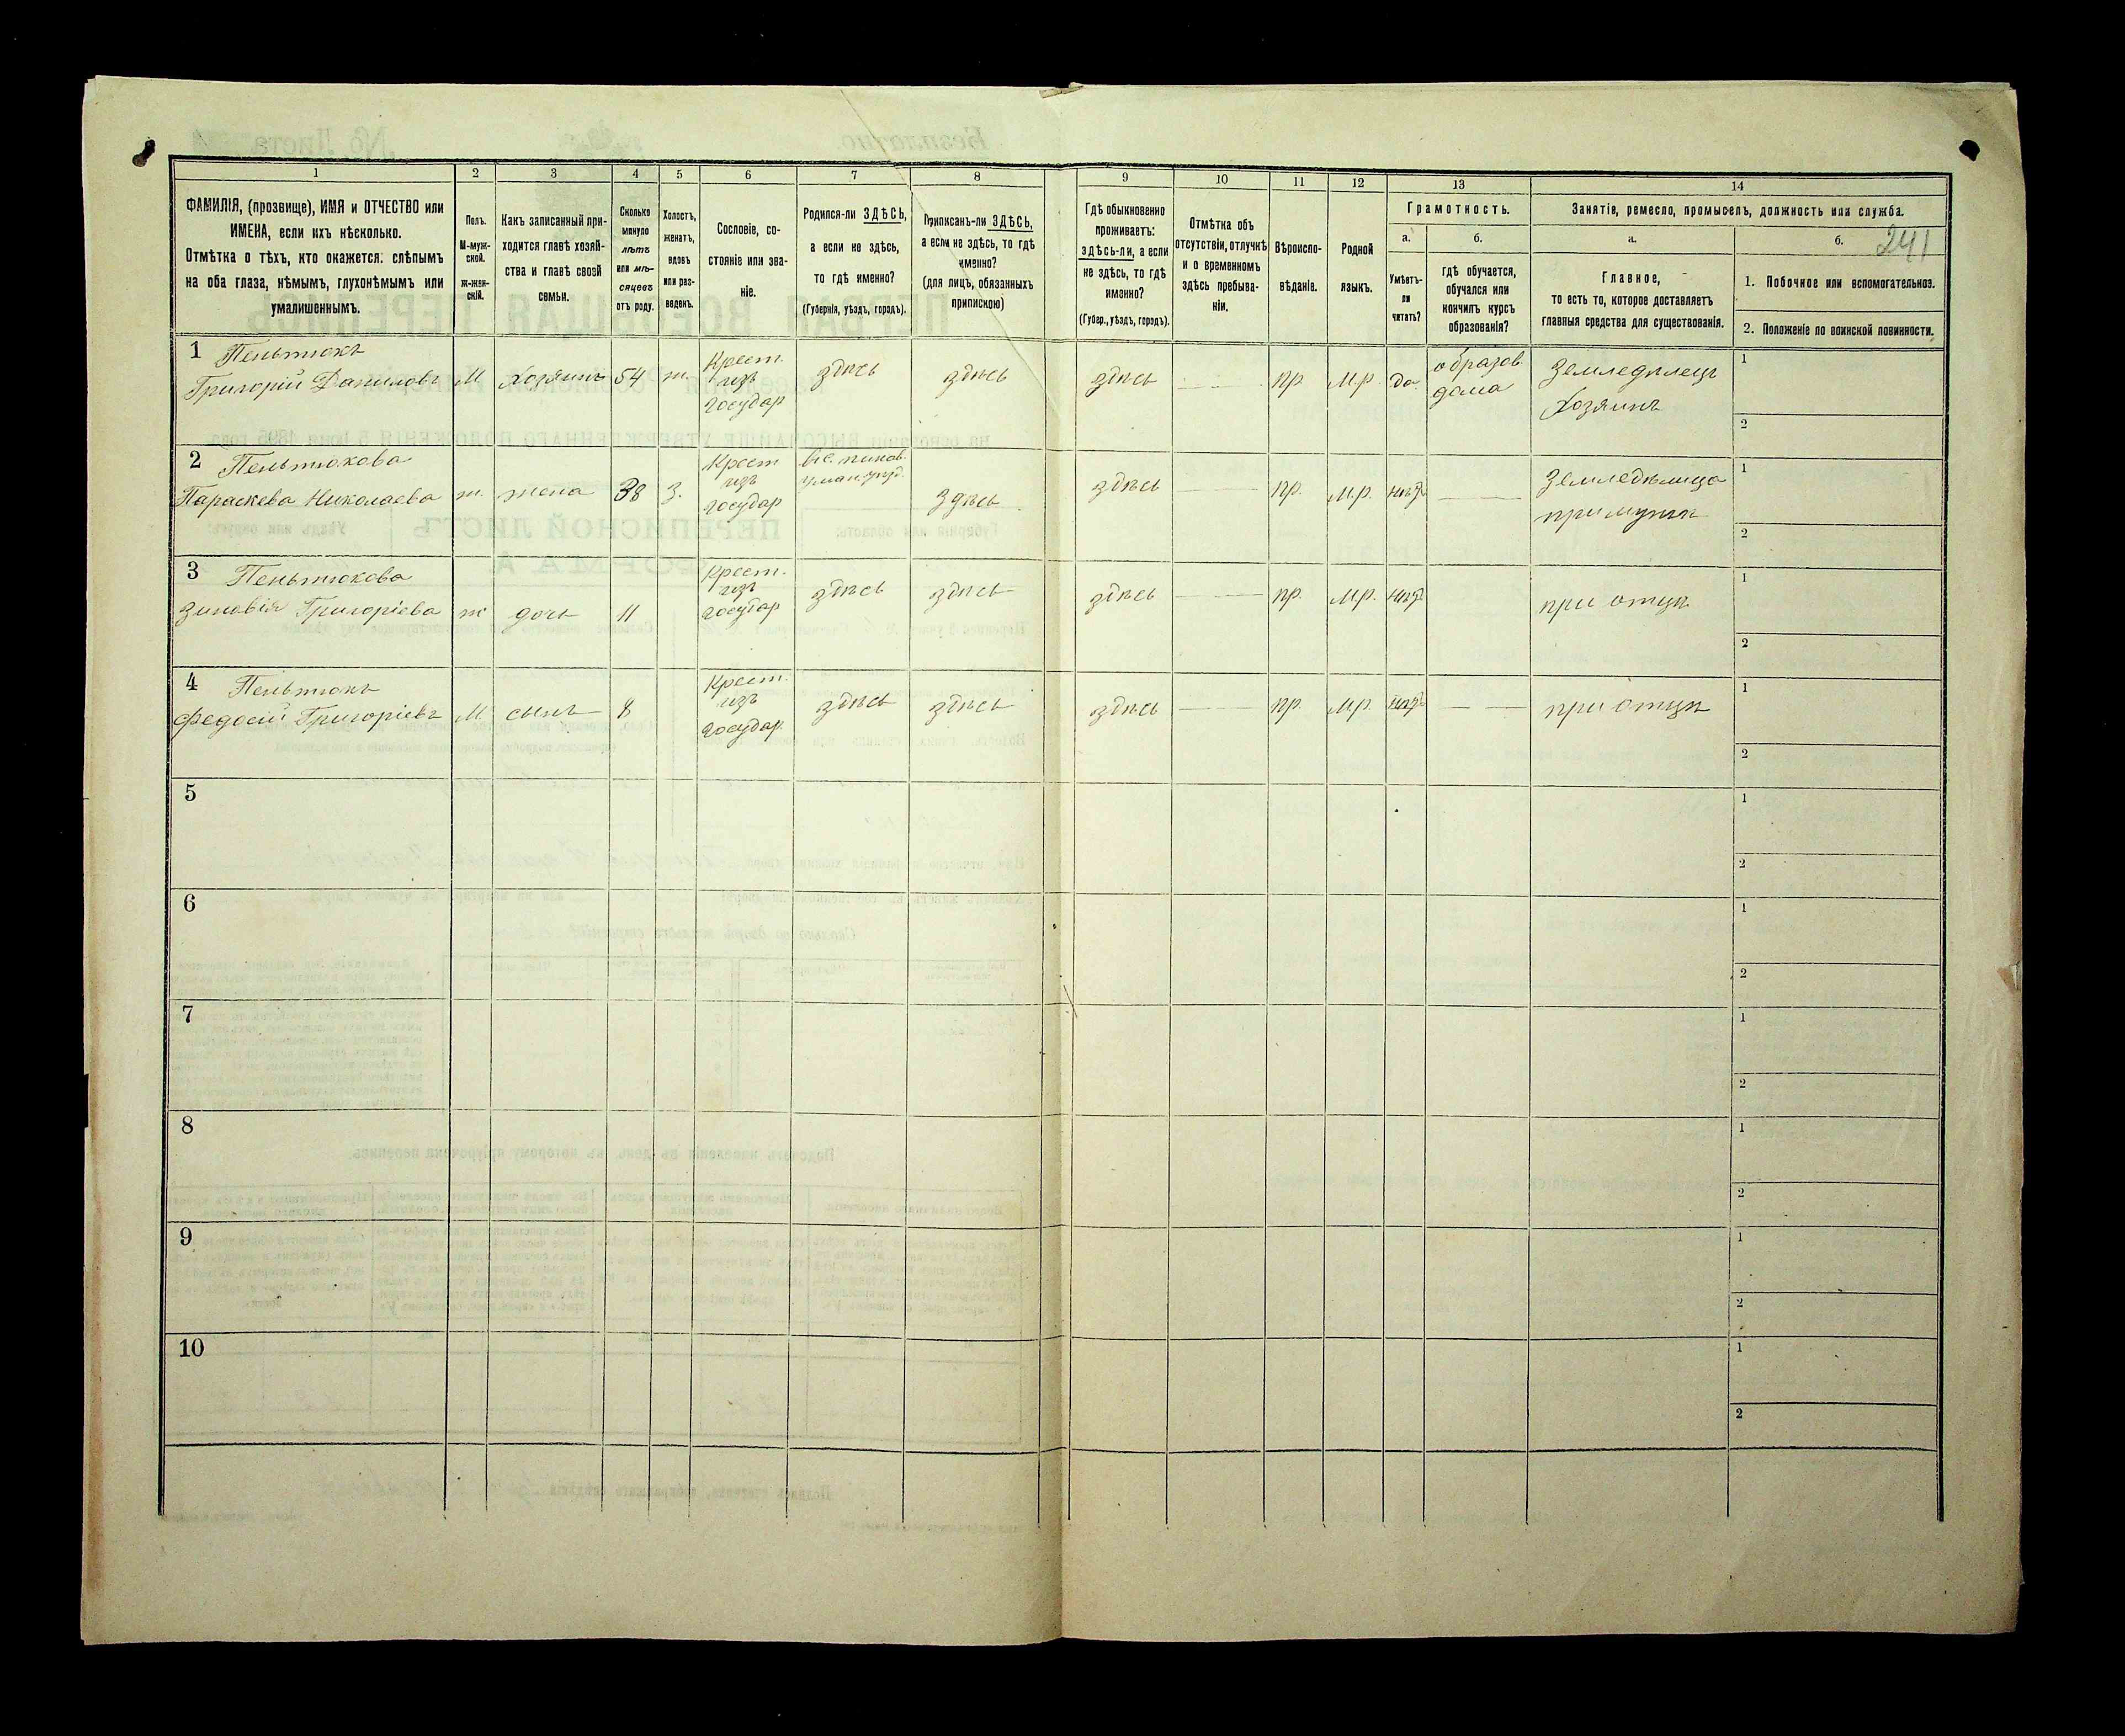 1 2 3 4 5 6 7 8 9 10 11 12 13 14
ФАМИЛІЯ, (прозвище), ИМЯ и ОТЧЕСТВО или
ИМЕНА, если ихъ нѣсколько.
Отмѣтка о тѣхъ, кто окажется: слѣпымъ
на оба глаза, нѣмымъ, глухонѣмымъ или
умалишеннымъ.
Полъ.
М-муж-
ской.
ж-жен-
скій.
Какъ записанный при-
ходится главѣ хозяй-
ства и главѣ своей
семьи.
Сколько
минуло
лѣтъ
или мѣ-
сяцевъ
отъ роду.
Холостъ,
женатъ,
вдовъ
или раз-
веденъ.
Сословіе, со-
стояніе или зва-
ніе.
Родился-ли ЗДѢСЬ,
а если не здѣсь,
то гдѣ именно?
(Губернія, уѣздъ, городъ).
Приписанъ-ли ЗДѢСЬ,
а если не здѣсь, то гдѣ
именно?
(для лицъ, обязанныхъ
припискою)
Гдѣ обыкновенно
проживаетъ:
здѣсь-ли, а если
не здѣсь, то гдѣ
именно?
(Губер., уѣздъ, городъ).
Отмѣтка объ
отсутствіи, отлучкѣ
и о временномъ
здѣсь пребыва-
ніи.
Вѣроиспо-
вѣданіе.
Родной
языкъ.
Грамотность.
а.
Умѣетъ-
ли
читать?
б.
гдѣ обучается,
обучался или
кончилъ курсъ
образованія?
Занятіе, ремесло, промыселъ, должность или служба.
а.
Главное,
то есть то, которое доставляетъ
главныя средства для существованія.
б.
241
1. Побочное или вспомогательное.
2. Положеніе по воинской повинности.
1 Пеньтюкъ
Григорій Даниловъ М Хозяинъ 54 ж.
Крест.
изъ
государ
здѣсь здѣсь здѣсь пр. М.р. да
образов
дома
Земледѣлецъ
Хозяинъ
1
2
2 Пеньтюкова
Параскева Николаева ж. жена 38 з.
Крест
изъ
государ
здѣсь здѣсь пр. М.р. нѣтъ
Земледѣлица
при мужѣ
1
2
3 Пеньтюкова
Зиновія Григоріева ж дочь 11
Крест.
изъ
государ
здѣсь здѣсь здѣсь пр. М.р. нѣтъ при отцѣ
1
2
4 Пеньтюкъ
Федосій Григоріевъ М. сынъ 8
Крест.
изъ
государ.
здѣсь здѣсь здѣсь пр. М.р. нѣтъ при отцѣ
1
2
5
1
2
6
1
2
7
1
2
8
1
2
9
1
2
10
1
2